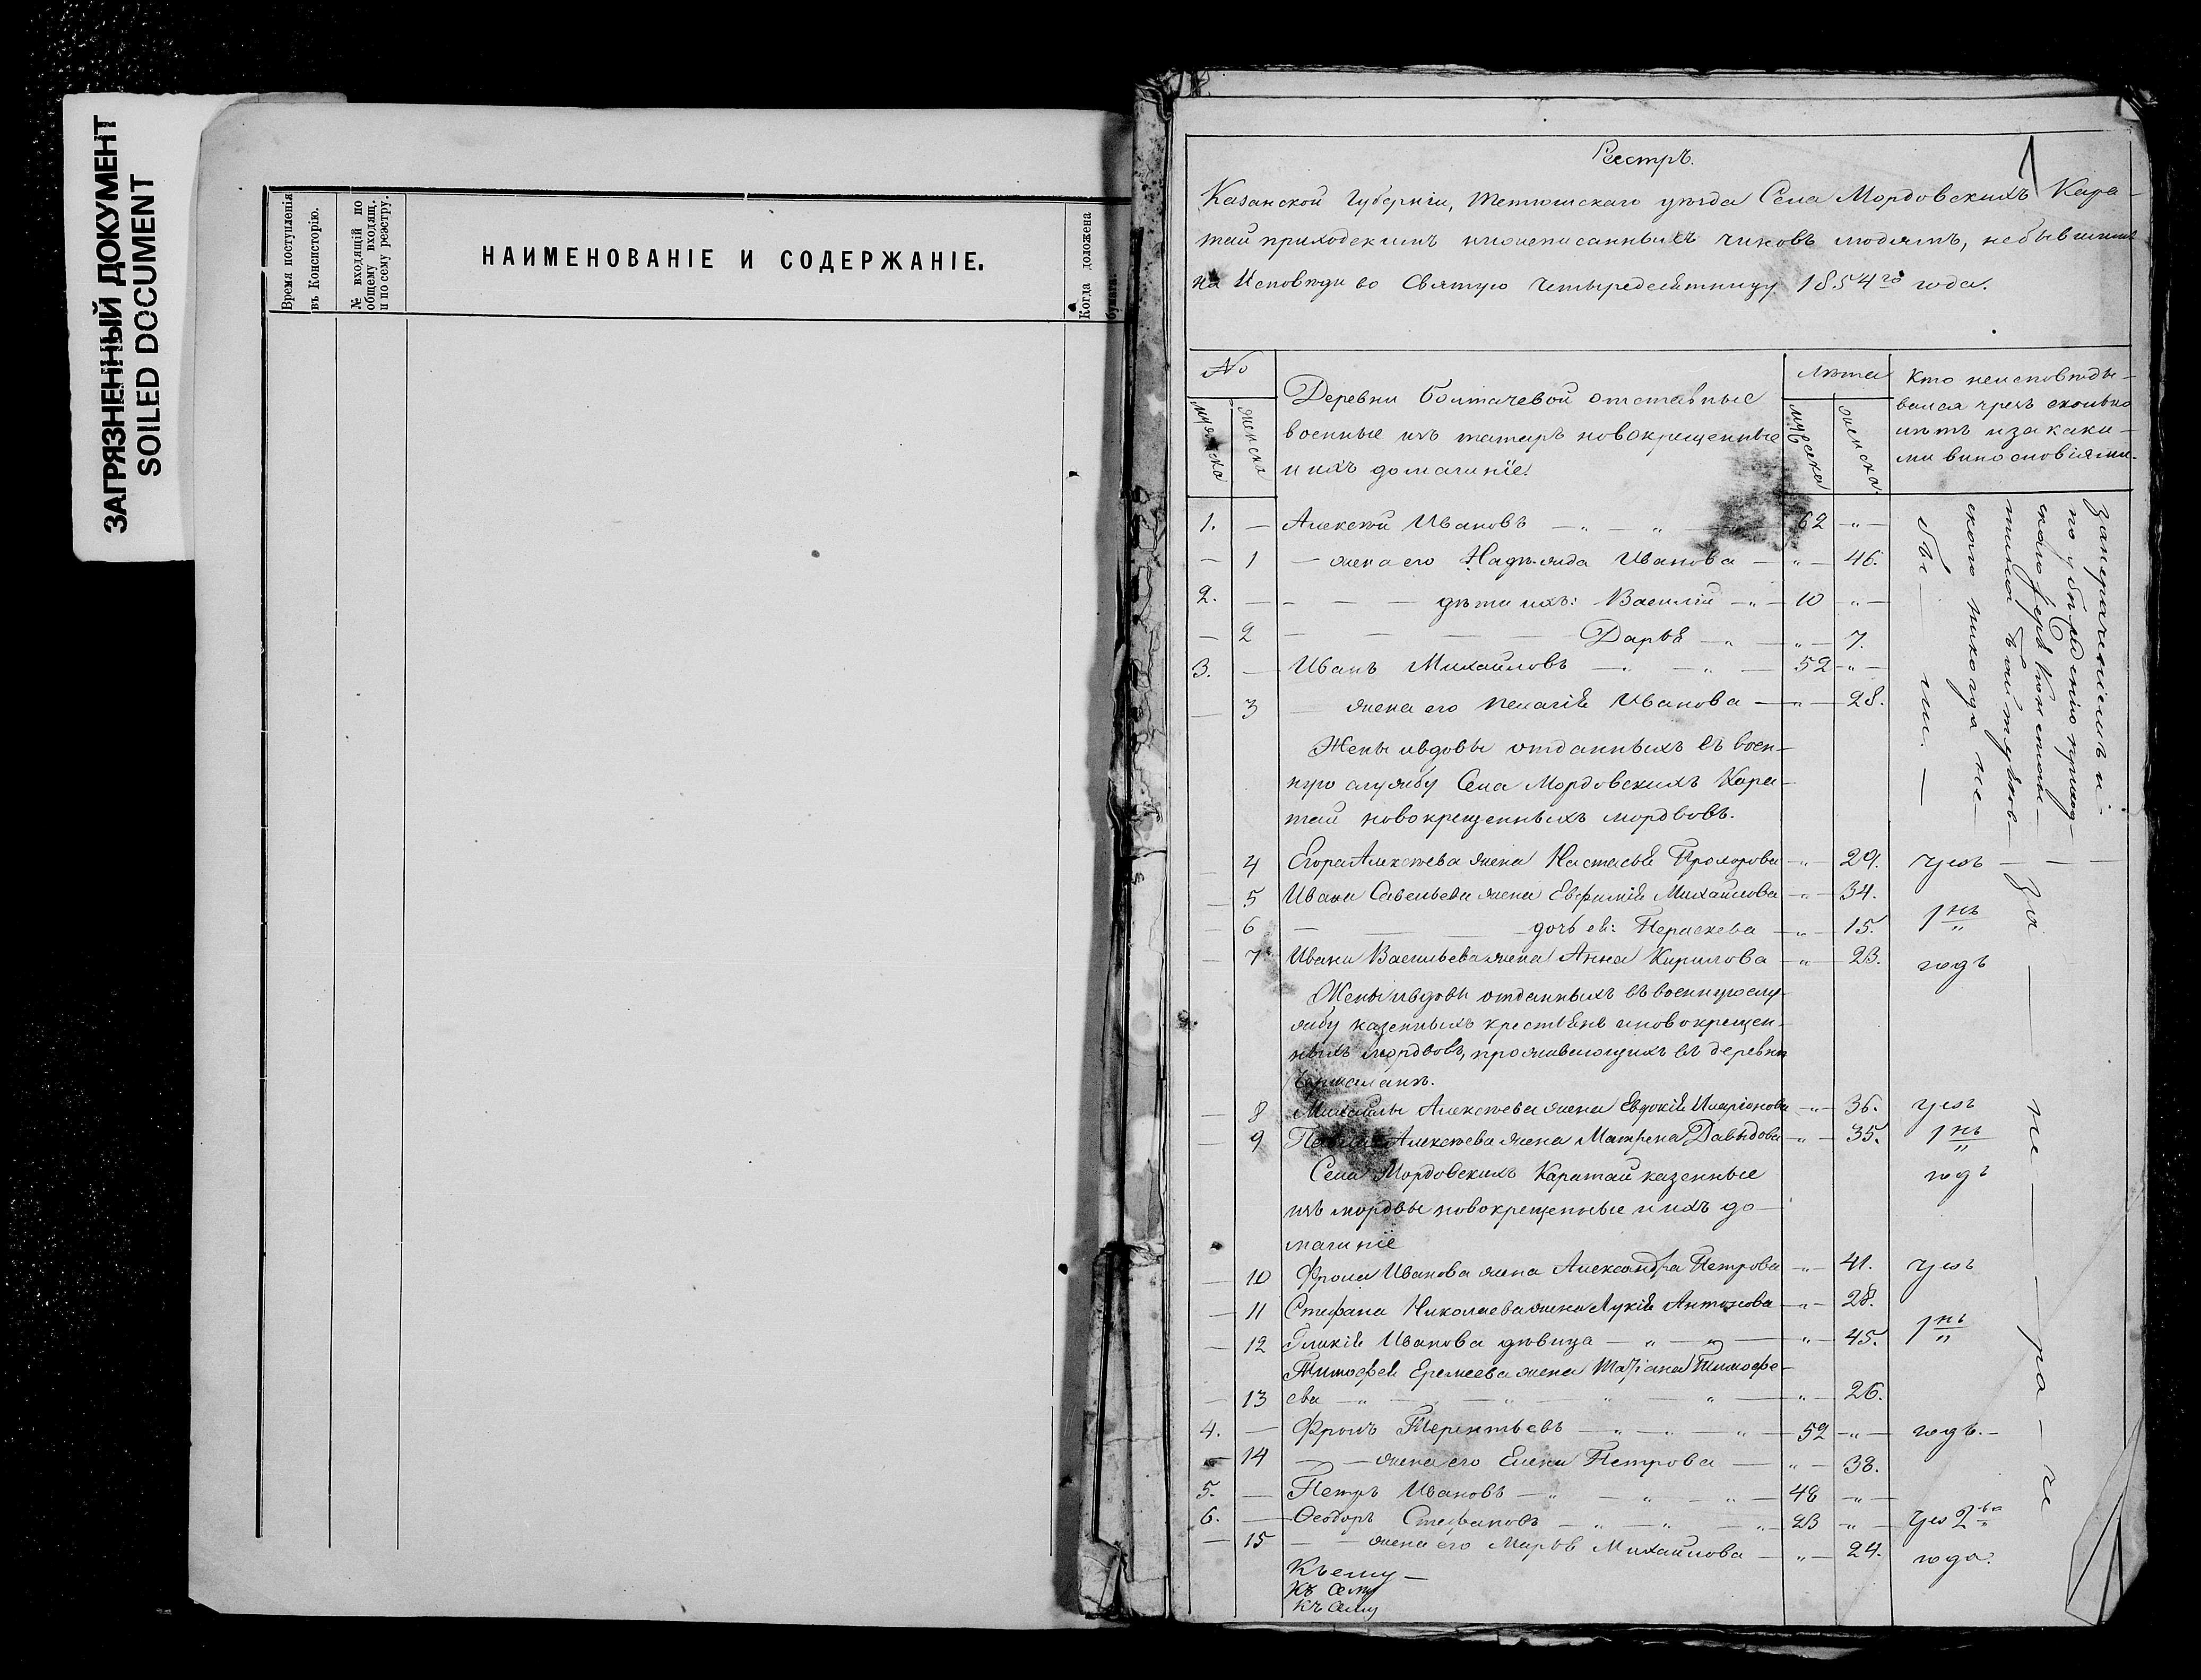 ЗАГРЯЗНЕННЫЙ ДОКУМЕНТ
SOILED DOCUMENT
Время поступленія
въ Консисторію.
№ входящій по
общему входящ.
и по сему реестру.
НАИМЕНОВАНІЕ И СОДЕРЖАНІЕ.
Когда доложена
бумага
1
Реестръ.
Казанской Губерніи, Тетюшскаго уѣзда Села Мордовскихъ Кара-
тай приходскимъ нижеписанныхъ чиновъ людямъ, небывшимъ
на Исповѣди во Святую Четыредесятницу 1854го года.
№
мужска
женска
Деревни Болтачевой отставные
военные изъ татаръ новокрещенные
и ихъ домашніе.
Лѣта
мужска
женска
Кто неисповѣды-
вался чрезъ сколько
лѣтъ и за каки-
ми вино словіями.
1. — Алексѣй Ивановъ — 62 —
— 1 — жена его Надѣжда Иванова — 46.
2. — дѣти ихъ: Василій — 10 —
— 2 — Дарья — 7.
3. — Иванъ Михайловъ — 52 —
— 3 жена его Пелагія Иванова — 28.
никогда не
бы — ли. —
Жены и вдовы отданныхъ въ воен-
ную службу Села Мордовскихъ Кара-
тай новокрещенныхъ мордвовъ.
— 4 Егора Алексѣева жена Настасья Прохорова — 29. чрезъ
— 5 Ивана Савельева жена Евфимія Михайлова — 34.
— 6 — дочь ея: Параскева — 15. 1нъ
— 7 Ивана Васильева жена Анна Кирилова — 23. годъ
Жены и вдовы отданныхъ въ военную слу-
жбу казенныхъ крестьянъ и новокрещен-
ныхъ мордвовъ, проживающихъ въ деревни
— 8 Михайлы Алексѣева жена Евдокія Иларіонова — 36. чрезъ
— 9 Алексѣева жена Матрена Давыдова — 35. 1нъ
годъ
Села Мордовскихъ Каратай казенные
изъ мордвы новокрещенные и ихъ до-
машніе
— 10 Фрола Иванова жена Александра Петрова — 41. чрезъ
— 11 Стефана Николаева жена Лукія Антонова — 28.
— 12 Гликія Иванова дѣвица — 45. 1нъ
Тимофея Еремеева жена Татіана Тимофе-
— 13 ева — 26.
4. — Фролъ Терентьевъ — 52 — годъ. —
— 14 — жена его Елена Петрова — 38.
5. — Петръ Ивановъ — 48 —
6. — Ѳеодоръ Стефановъ — 23 — чрез 2ва
— 15 — жена его Марья Михайлова — 24. года.
За — не — ра — че
Къ сему —
Къ сему
Къ сему